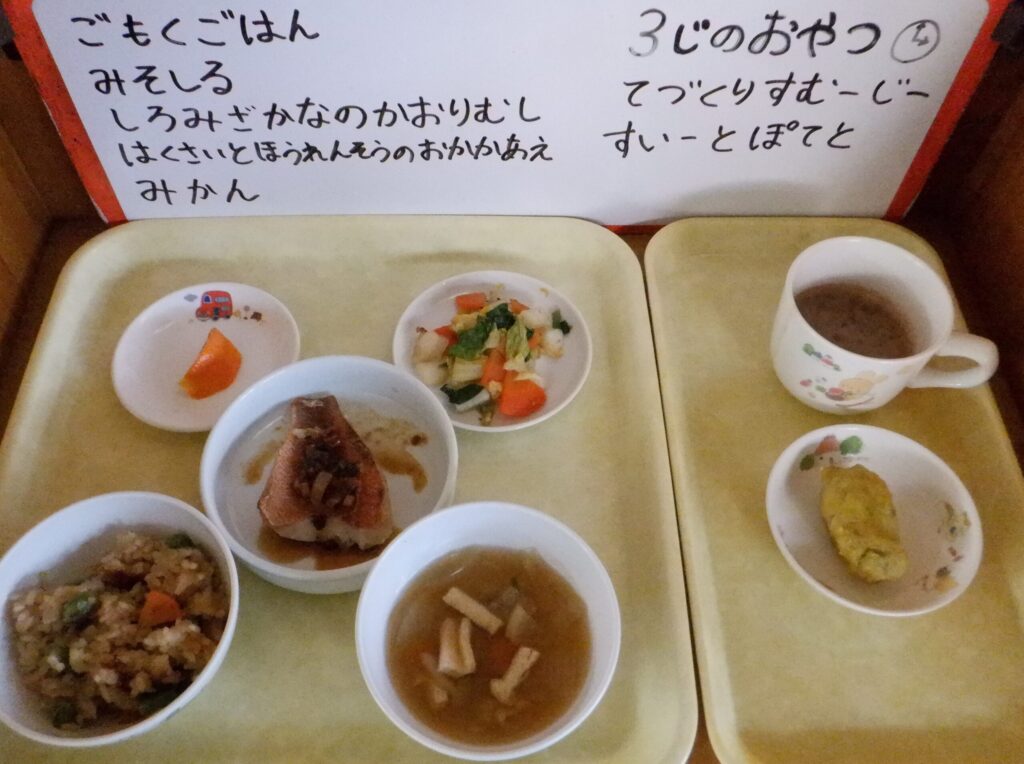 ごもくごはん
みそしる
しろみざかなのかおりむし
はくさいとほうれんそうのおかかあえ
みかん
3じのおやつ
てづくりすむーじー
すいーとぽてと